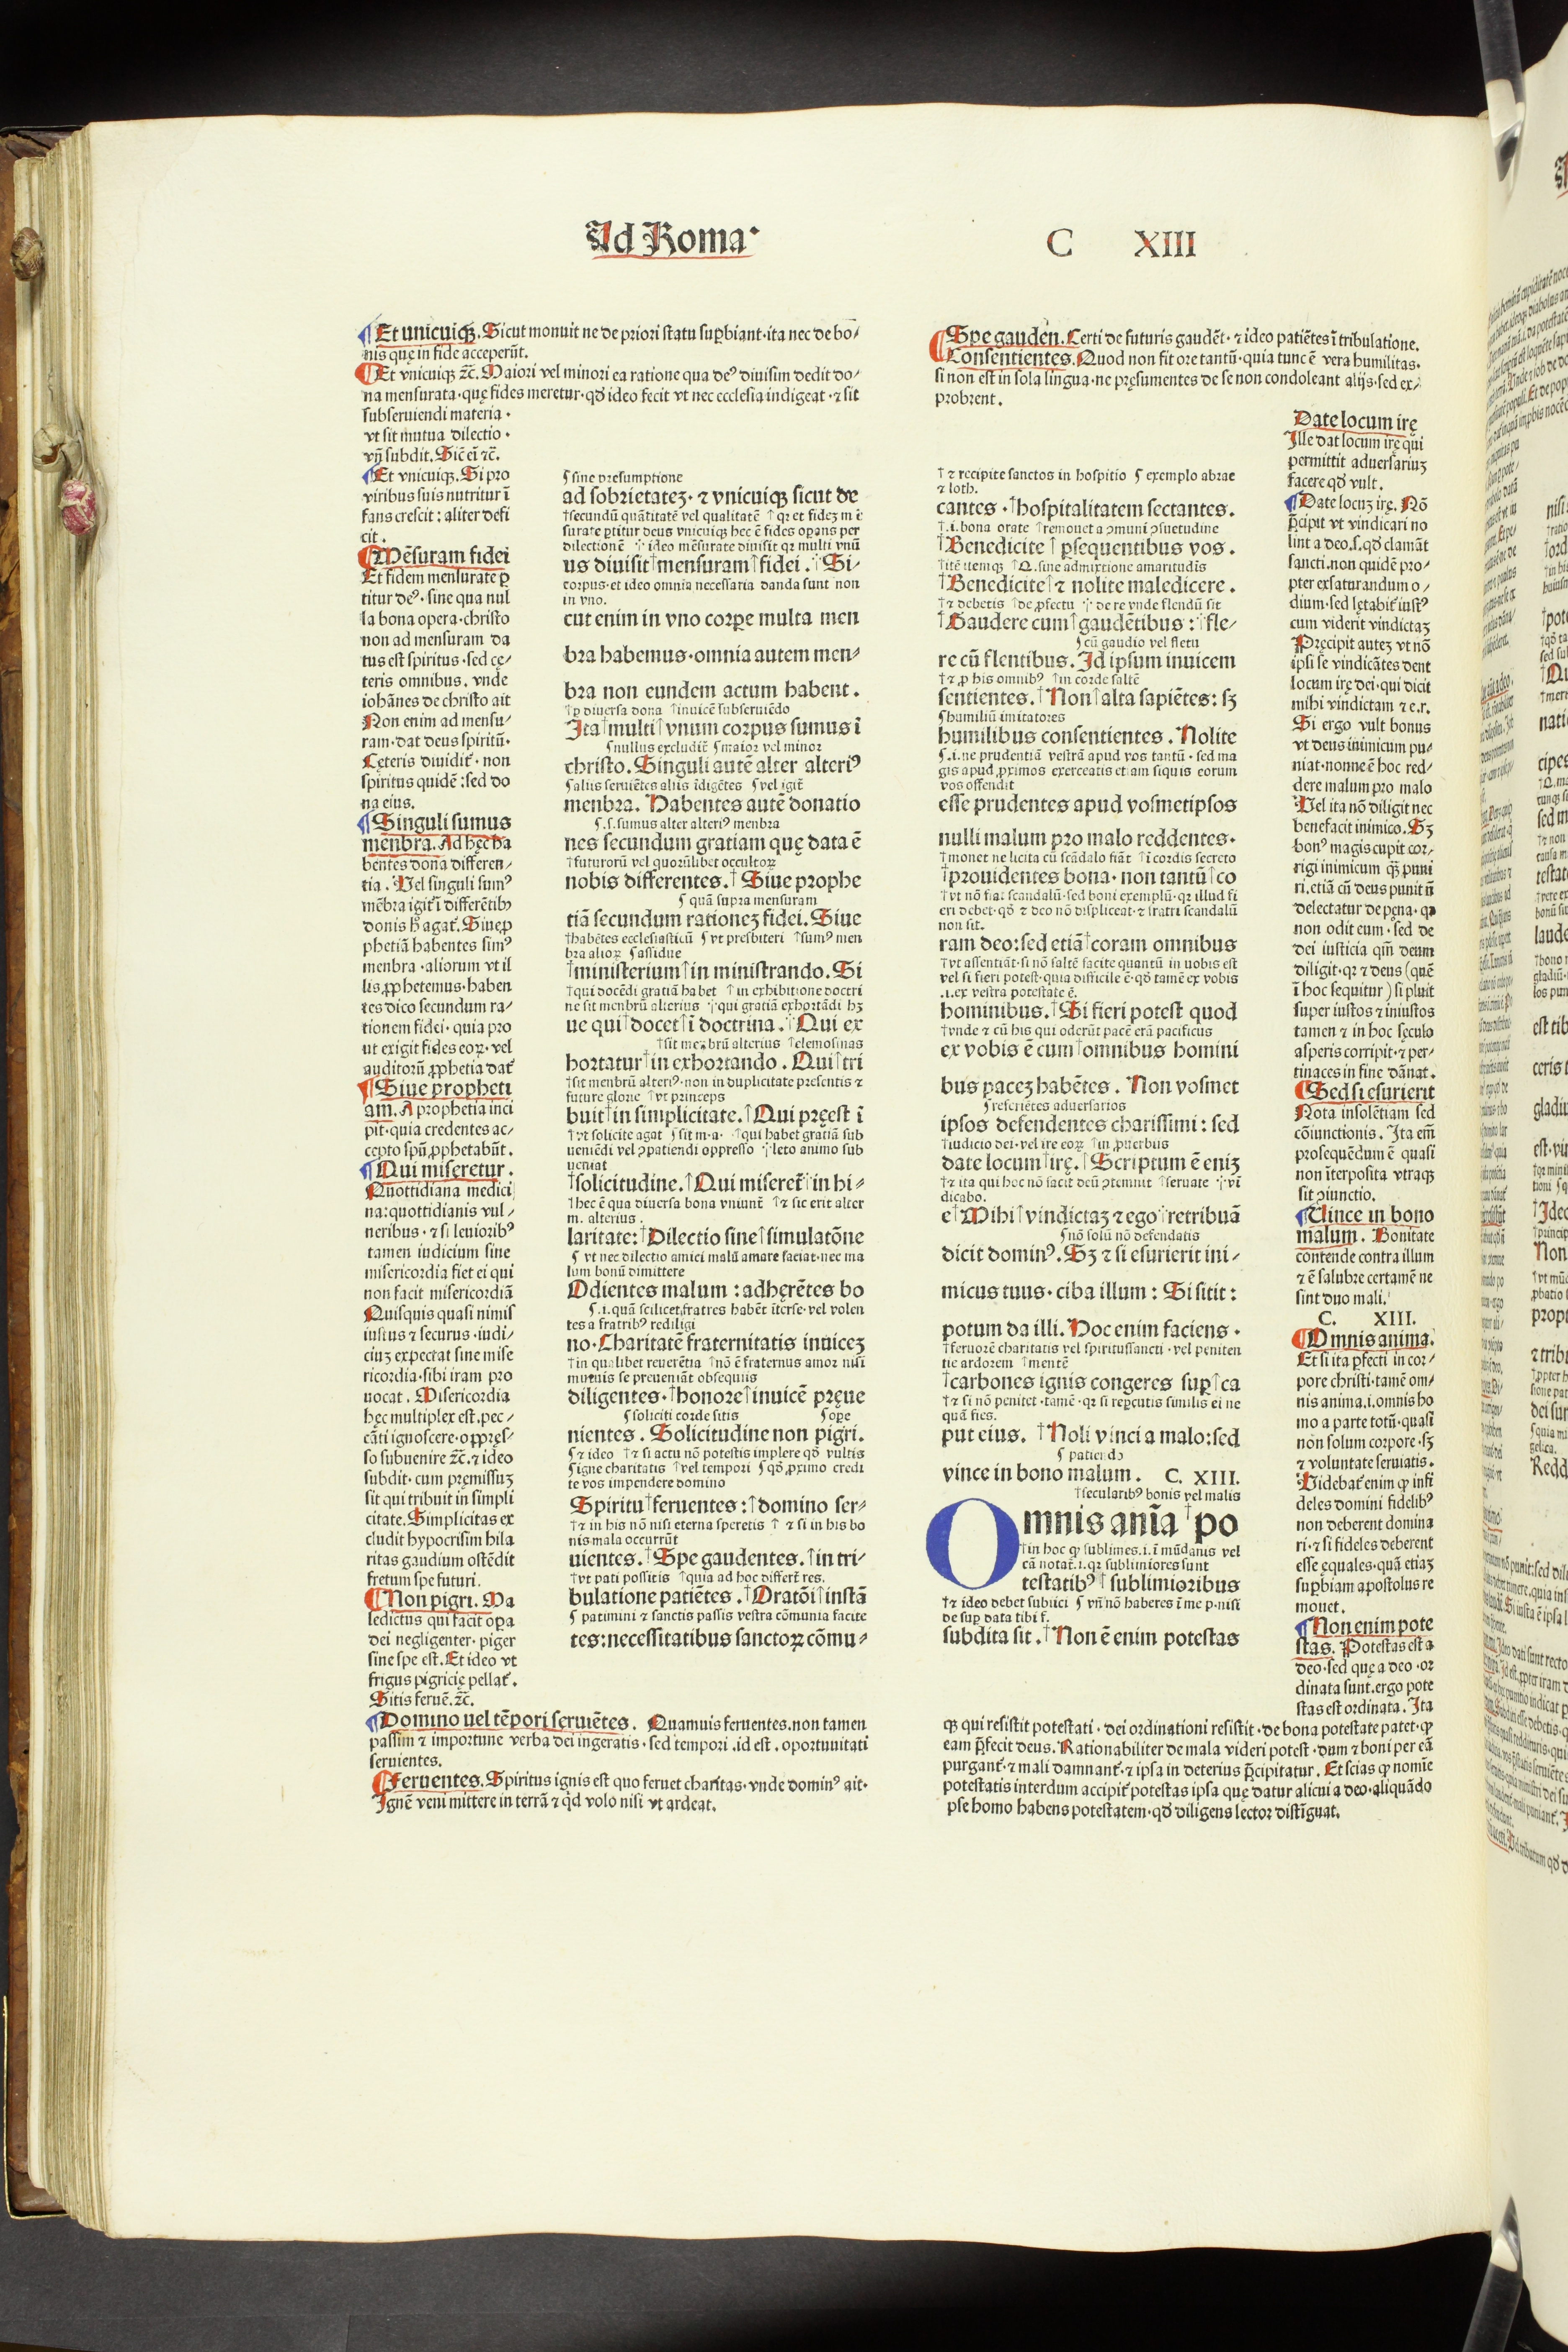 Ad Roma·
C XIII
¶Et unicuiqꝫ. Sicut monuit ne de priori statu supbiant·ita nec de bo-
nis quę in fide acceperūt.
¶Et vnicuiqꝫ ⁊c̄. Maiori vel minori ea ratione qua deꝰ diuisim dedit do-
na mensurata·quę fides meretur·qđ ideo fecit vt nec ecclesia indigeat·⁊ sit
subseruiendi materia·
vt sit mutua dilectio·
vn̄ subdit. Sic̄ ei ⁊c̄.
¶Et vnicuiqꝫ. Si pro
viribus suis nutritur ī
fans crescit: aliter defi
cit.
¶Mēsuram fidei
Et fidem mensurate ꝑ
titur deꝰ·sine qua nul
la bona opera·christo
non ad mensuram da
tus est spiritus·sed cę-
teris omnibus. vnde
iohānes de christo ait
Non enim ad mensu-
ram·dat deus spiritū·
Cęteris diuidit᷑·non
spiritus quidē:sed do
na eius.
¶Singuli sumus
menbra. Ad hęc ha
bentes dona differen-
tia. Vel singuli sumꝰ
mēbra igit᷑ ī differētibꝰ
donis h̄ agat᷑. Siue ꝓ
phetiā habentes simꝰ
menbra·aliorum vt il
lis ꝓphetemus·haben
tes dico secundum ra-
tionem fidei·quia pro
ut exigit fides eoꝝ·vel
auditorū ꝓphetia dat᷑
¶Siue propheti
am. A prophetia inci
pit·quia credentes ac-
cepto spū ꝓphetabāt.
¶Qui miseretur.
Quottidiana medici
na:quottidianis vul-
neribus·⁊ si leuioribꝰ
tamen iudicium sine
misericordia fiet ei qui
non facit misericordiā
Quisquis quasi nimis
iustus ⁊ securus·iudi-
ciuꝫ expectat sine mise
ricordia·sibi iram pro
uocat. Misericordia
hęc multiplex est·pec-
cāti ignoscere·oppręs-
so subuenire ⁊c̄.⁊ ideo
subdit·cum pręmissuꝫ
sit qui tribuit in simpli
citate. Simplicitas ex
cludit hypocrisim hila
ritas gaudium ostēdit
fretum spe futuri.
¶Non pigri. Ma
ledictus qui facit oꝑa
dei negligenter·piger
sine spe est. Et ideo vt
frigus pigricię pellat᷑.
Sitis feruē.⁊c̄.
¶Domino uel tēpori seruiētes. Quamuis feruentes·non tamen
passim ⁊ importune verba dei ingeratis·sed tempori·id est·oportunitati
seruientes.
¶Feruentes. Spiritus ignis est quo feruet charitas·vnde dominꝰ ait·
Ignē veni mittere in terrā ⁊ qđ volo nisi vt ardeat.
⸗sine presumptione
ad sobrietateꝫ·⁊ vnicuiqꝫ sicut de
†secundū quātitatē vel qualitatē †qꝛ et fideꝫ m ē
surate ꝑtitur deus vnicuiqꝫ hec ē fides oꝑans per
dilectionē ·:· ideo mēsurate diuisit qꝛ multi vnū
us diuisit†mensuram†fidei. Si-
corpus·et ideo omnia necessaria danda sunt non
in vno.
cut enim in vno corpe multa men
bra habemus·omnia autem men-
bra non eundem actum habent.
†ꝑ diuersa dona †inuicē subseruiēdo
Ita†multi†vnum corpus sumus ī
ʃnullus excludit᷑ ʃmaior vel minor
christo. Singuli autē alter alteriꝰ
ʃaliis seruiētes aliis īdigētes ʃvel igit᷑
menbra. Habentes autē donatio
ʃ.s.sumus alter alteriꝰ menbra
nes secundum gratiam quę data ē
†futurorū vel quorūlibet occultoꝝ
nobis differentes.†Siue prophe
ʃ quā supra mensuram
tiā secundum rationeꝫ fidei. Siue
†habētes ecclesiasticū ʃ vt presbiteri †sumꝰ men
bra alioꝝ ʃassidue
†ministerium†in ministrando. Si
†qui docēdi gratiā habet †in exhibitione doctri
ne sit menbrū alterius ·:·qui gratiā exhortādi hꝫ
ue qui†docet†ī doctrina. Qui ex
†sit menbrū alterius †elemosinas
hortatur†in exhortando. Qui†tri
†sit menbrū alteriꝰ·non in duplicitate presentis ⁊
future glorie †vt princeps
buit†in simplicitate.†Qui pręest ī
†vt solicite agat ʃsit m·a· †qui habet gratiā sub
ueniēdi vel ꝯpatiendi oppresso ·:·leto animo sub
ueniat
†solicitudine.†Qui miseret᷑†in hi-
†hec ē qua diuersa bona vniunt᷑ †⁊ sic erit alter
m. alterius.
laritate:†Dilectio sine†simulatōne
ʃ vt nec dilectio amici malū amare faciat·nec ma
lum bonū dimittere
Odientes malum: adhęrētes bo
ʃ.i.quā scilicet fratres habēt īterse·vel volen
tes a fratribꝰ rediligi
no·Charitatē fraternitatis inuiceꝫ
†in qualibet reuerētia †nō ē fraternus amor nisi
mutuis se preueniāt obsequiis
diligentes·†honore†inuicē pręue
ʃsoliciti corde sitis ʃoꝑe
nientes. Solicitudine non pigri.
ʃ⁊ ideo †⁊ si actu nō potestis implere qđ vultis
ʃigne charitatis †vel tempori ʃqđ ꝓximo credi
te vos impendere domino
Spiritu†feruentes:†domino ser-
†⁊ in his nō nisi eterna speretis † ⁊ si in his bo
nis mala occurrūt
uientes.†Spe gaudentes.†in tri-
†vt pati possitis †quia ad hoc differt᷑ res.
bulatione patiētes.†Oratōi†instā
ʃ patimini ⁊ sanctis passis vestra cōmunia facite
tes:necessitatibus sanctoꝝ cōmu-
¶Spe gauden. Certi de futuris gaudēt·⁊ ideo patiētes ī tribulatione.
¶Consentientes. Quod non fit ore tantū·quia tunc ē vera humilitas·
si non est in sola lingua·ne pręsumentes de se non condoleant alijs·sed ex-
probrent.
†⁊ recipite sanctos in hospitio ʃ exemplo abrae
⁊ loth.
cantes·†hospitalitatem sectantes.
†.i.bona orate †remouet a ꝯmuni ꝯsuetudine
†Benedicite†psequentibus vos.
†itē itemqꝫ †Q.sine admixtione amaritudīs
†Benedicite†⁊ nolite maledicere.
†⁊ debetis †de ꝓfectu ·:·de re vnde flendū sit
†Gaudere cum†gaudētibus:†fle-
ʃcū gaudio vel fletu
re cū flentibus. Id ipsum inuicem
†⁊ ꝓ his omnibꝰ †in corde saltē
sentientes.†Non†alta sapiētes: sꝫ
ʃhumiliū imitatores
humilibus consentientes. Nolite
ʃ.i.ne prudentiā vestrā apud vos tantū·sed ma
gis apud ꝓximos exerceatis etiam siquis eorum
vos offendit
esse prudentes apud vosmetipsos
nulli malum pro malo reddentes·
†monet ne licita cū scādalo fiāt †ī cordis secreto
†prouidentes bona·non tantū†co
†vt nō fiat scandalū·sed boni exemplū·qꝛ illud fi
eri debet·qđ ⁊ deo nō displiceat·⁊ fratri scandalū
non sit.
ram deo:sed etiā†coram omnibus
†vt assentiāt·si nō saltē facite quantū in uobis est
vel si fieri potest·quia difficile ē·qđ tamē ex vobis
.i.ex vestra potestate ē.
hominibus.†Si fieri potest quod
†vnde ⁊ cū his qui oderūt pacē erā pacificus
ex vobis ē cum†omnibus homini
bus paceꝫ habētes. Non vosmet
ʃreferiētes aduersarios
ipsos defendentes charissimi: sed
†iudicio dei·vel ire eoꝝ †in ꝓuerbiis
date locum†irę.†Scriptum ē eniꝫ
†⁊ ita qui hoc nō facit deū ꝯtemnit †seruate ·:·vī
dicabo.
e†Mihi†vindictaꝫ ⁊ ego†retribuā
ʃnō solū nō defendatis
dicit dominꝰ. Sꝫ ⁊ si esurierit ini-
micus tuus·ciba illum: Si sitit:
potum da illi. Hoc enim faciens·
†feruorē charitatis vel spiritussancti·vel peniten
tie ardorem †mentē
†carbones ignis congeres sup†ca
†⁊ si nō penitet·tamē·qꝛ si repcutis similis ei ne
quā fies.
put eius. †Noli vinci a malo:sed
ʃ patiendo
vince in bono malum. C. XIII.
†secularibꝰ bonis vel malis
Omnis anīa†po
†in hoc ꝙ sublimes.i.ī mūdanis vel
cā notat᷑.i.qꝛ sublimiores sunt
testatibꝰ†sublimioribus
†⁊ ideo debet subiici ʃ vn̄ nō haberes ī me p·nisi
de sup data tibi f.
subdita sit.†Non ē enim potestas
Date locum irę
Ille dat locum irę qui
permittit aduersariuꝫ
facere qđ vult.
¶Date locuꝫ irę. Nō
p̄cipit vt vindicari no
lint a deo.s.qđ clamāt
sancti·non quidē pro-
pter exsaturandum o-
dium·sed lętabit᷑ iustꝰ
cum viderit vindictaꝫ
Pręcipit auteꝫ vt nō
ipsi se vindicātes dent
locum irę dei·qui dicit
mihi vindictam ⁊ e.r.
Si ergo vult bonus
vt deus inimicum pu-
niat·nonne ē hoc red-
dere malum pro malo
Vel ita nō diligit nec
benefacit inimico. Sꝫ
bonꝰ magis cupit cor-
rigi inimicum qꝫ puni
ri·etiā cū deus punit nō
delectatur de pęna·qꝛ
non odit eum·sed de
dei iusticia qm̄ deum
diligit·qꝛ ⁊ deus (quē
ī hoc sequitur) si pluit
super iustos ⁊ iniustos
tamen ⁊ in hoc sęculo
asperis corripit·⁊ per-
tinaces in fine dānat.
¶Sed si esurierit
Nota insolētiam sed
cōiunctionis. Ita em̄
prosequēdum ē quasi
non īterposita vtraqꝫ
sit ꝯiunctio.
¶Vince in bono
malum. Bonitate
contende contra illum
⁊ ē salubre certamē ne
sint duo mali.
C. XIII.
¶Omnis anima.
Et si ita pfecti in cor-
pore christi·tamē om-
nis anima.i.omnis ho
mo a parte totū·quasi
non solum corpore·sꝫ
⁊ voluntate seruiatis.
Videbat᷑ enim ꝙ infi
deles domini fidelibꝰ
non deberent domina
ri·⁊ si fideles deberent
esse ęquales·quā etiaꝫ
supbiam apostolus re
mouet.
¶Non enim pote
stas. Potestas est a
deo·sed quę a deo·or
dinata sunt·ergo pote
stas est ordinata. Ita
qꝫ qui resistit potestati·dei ordinationi resistit·de bona potestate patet·ꝙ
eam p̄fecit deus. Rationabiliter de mala videri potest·dum ⁊ boni per eā
purgant᷑·⁊ mali damnant᷑·⁊ ipsa in deterius p̄cipitatur. Et scias ꝙ nomīe
potestatis interdum accipit᷑ potestas ipsa quę datur alicui a deo·aliquādo
pse homo habens potestatem·qđ diligens lector distīguat.